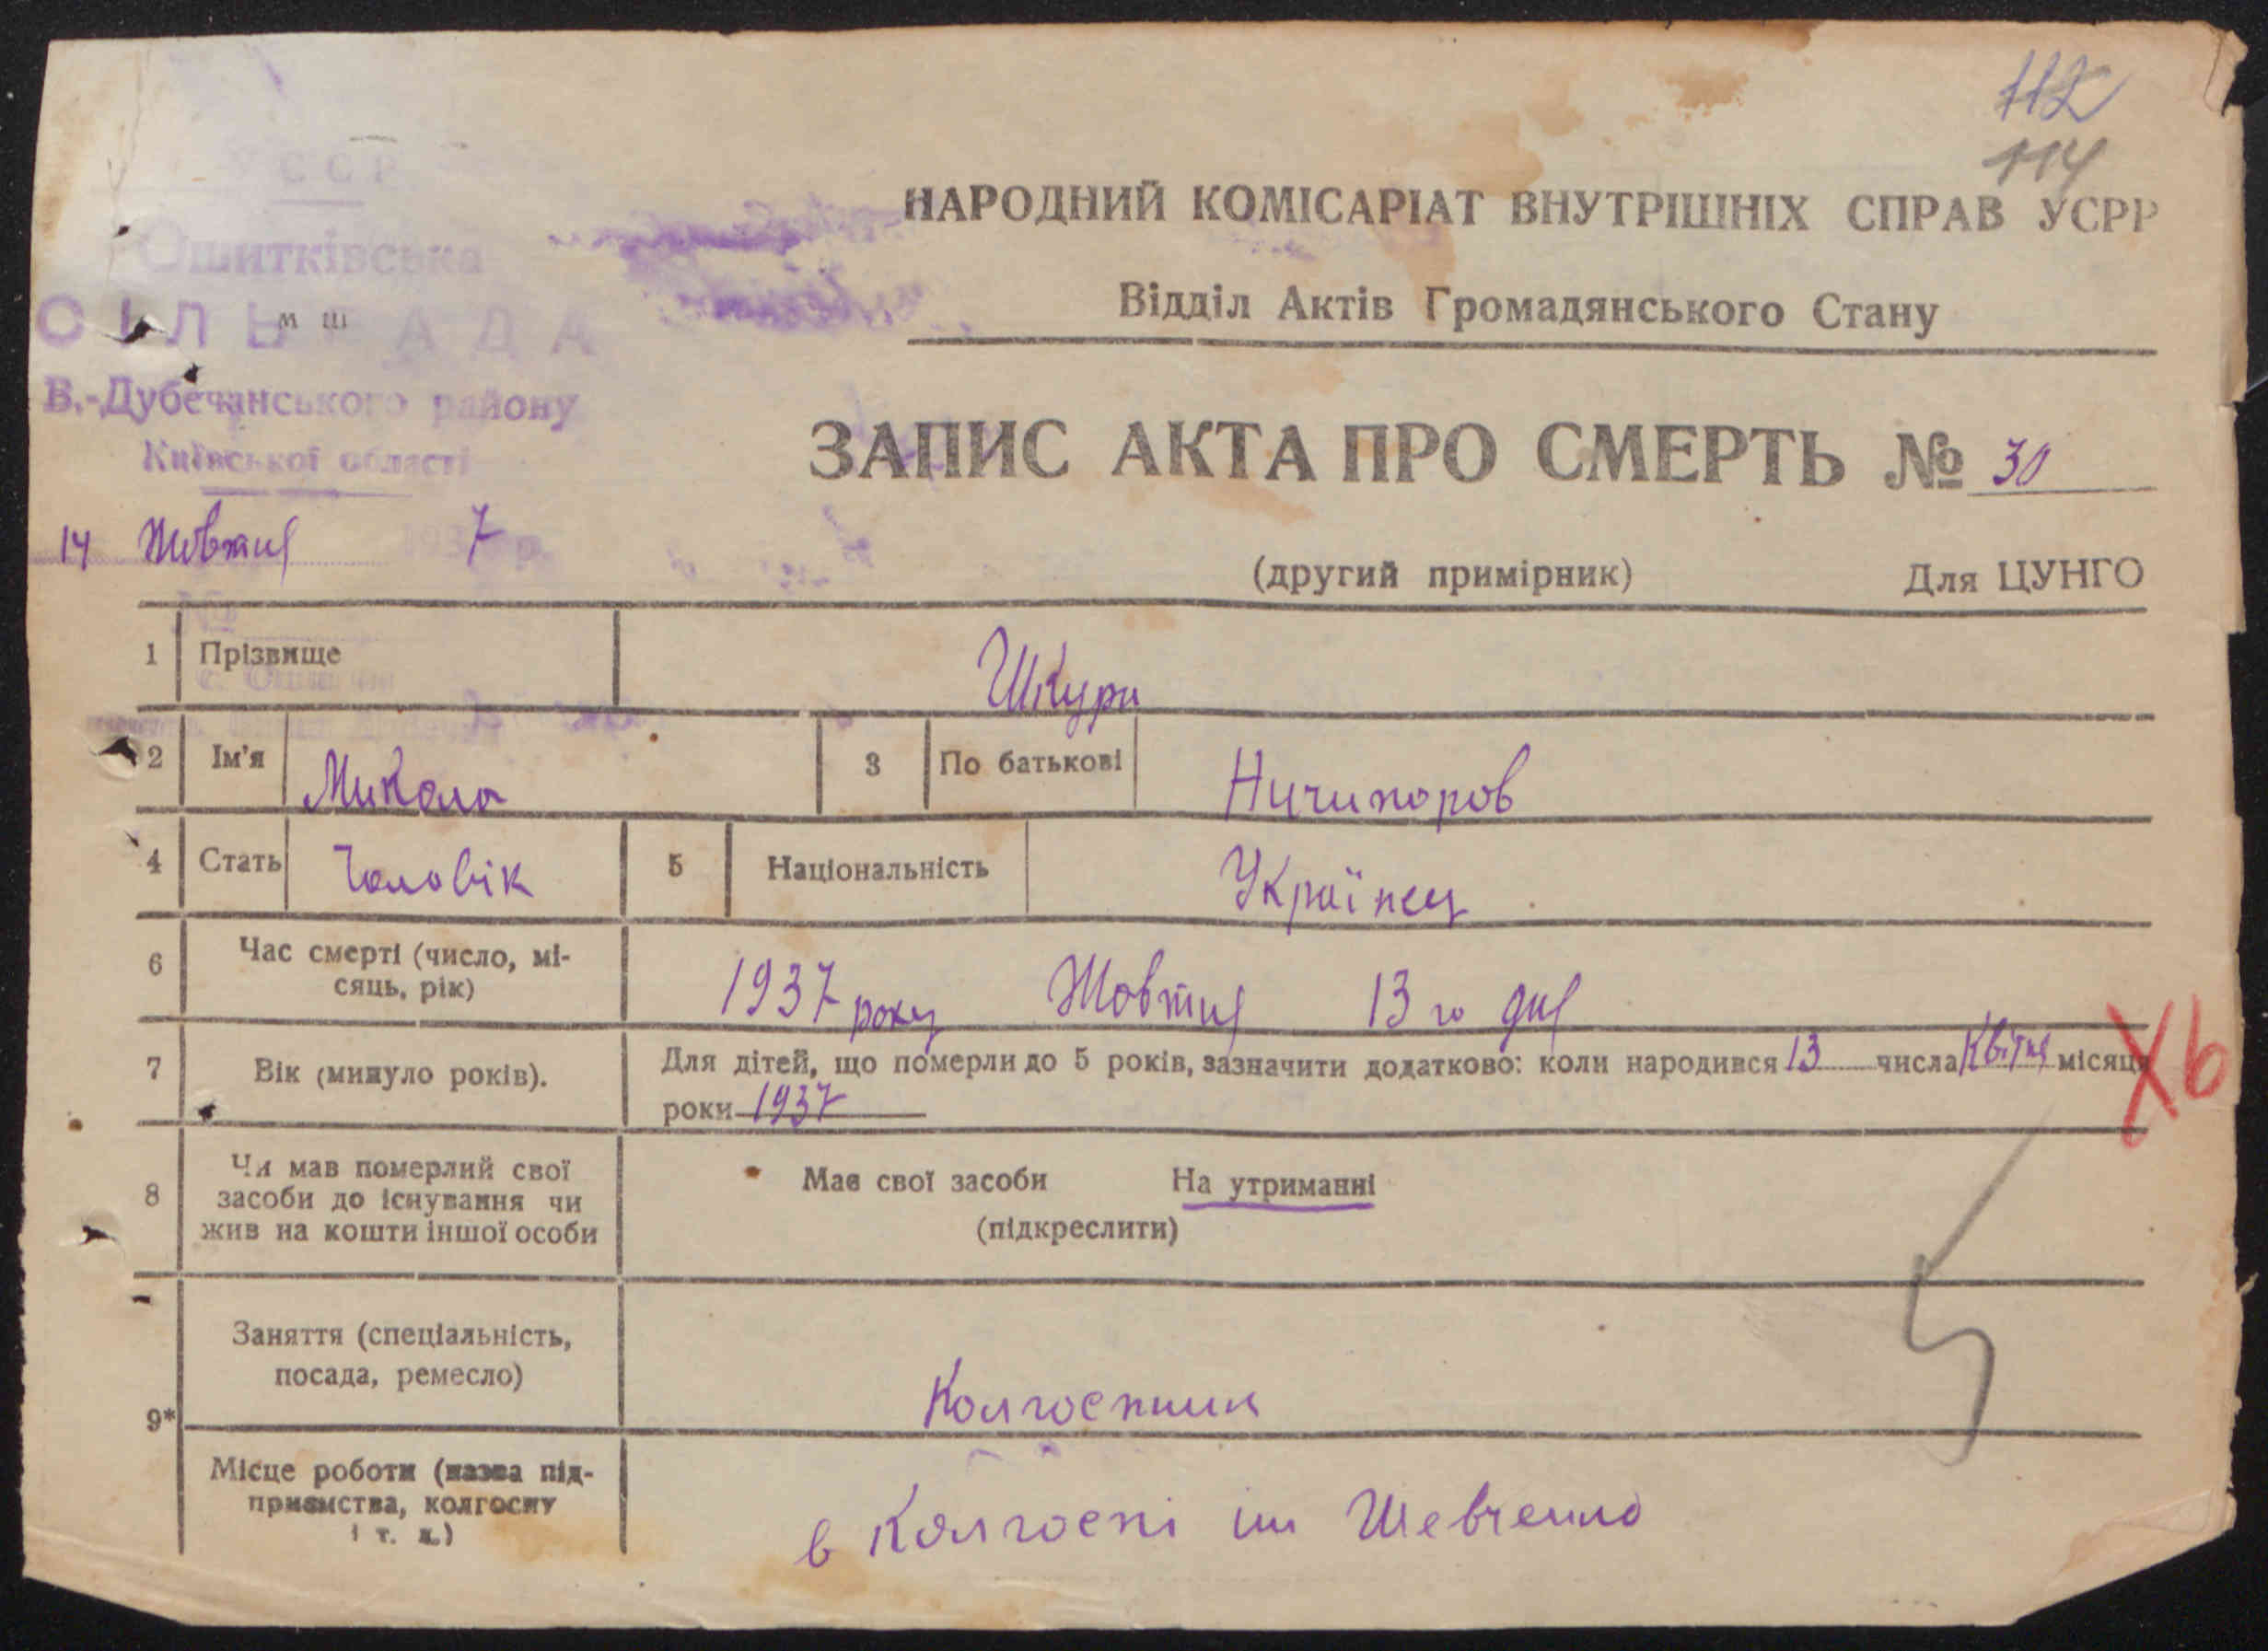 112
114
УССР
Ошитківська
СІЛЬРАДА
м ш
В.-Дубечанського району
Київської області
14 Жовтня 1937 р.
№
НАРОДНИЙ КОМІСАРІАТ ВНУТРІШНІХ СПРАВ УСРР
Відділ Актів Громадянського Стану
ЗАПИС АКТА ПРО СМЕРТЬ № 30
(другий примірник) Для ЦУНГО
1 Прізвище Шкура
2 Ім'я Микола 3 По батькові Ничипоров
4 Стать Чоловік 5 Національність Українец
6 Час смерті (число, мі-
сяць, рік) 1937 року Жовтня 13 го дня
7 Вік (минуло років). Для дітей, що померли до 5 років, зазначити додатково: коли народився 13 числа Квітня місяця
роки 1937
Х6
8 Чи мав померлий свої
засоби до існування чи
жив на кошти іншої особи
Має свої засоби На утриманні
(підкреслити)
9* Заняття (спеціальність,
посада, ремесло) Колгоспник
Місце роботи (назва під-
приємства, колгоспу
і т. д.) в Колгоспі ім Шевченко